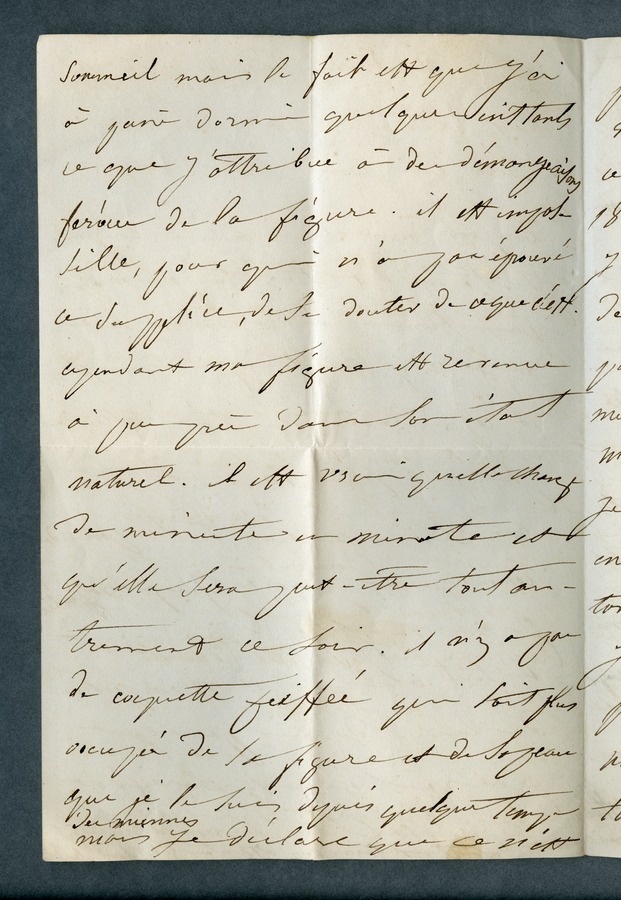 sommeil mais le fait est que j'ai
à peine dormi quelques instants
ce que j'attribue à des démangeaisons
féroces de la figure. il est impos-
sible, pour qui n'a pas éprouvé
ce supplice, de se douter de ce que c'est.
cependant ma figure est revenue
à peu près dans son état
naturel. il est vrai qu'elle change
de minute en minute et
qu'elle sera peut-être tout au-
trement ce soir. il n'y a pas
de coquette fieffée qui soit plus
occupée de sa figure et de sa peau
que je le suis depuis quelque temps
des miennes
mais je déclare que ce n'est